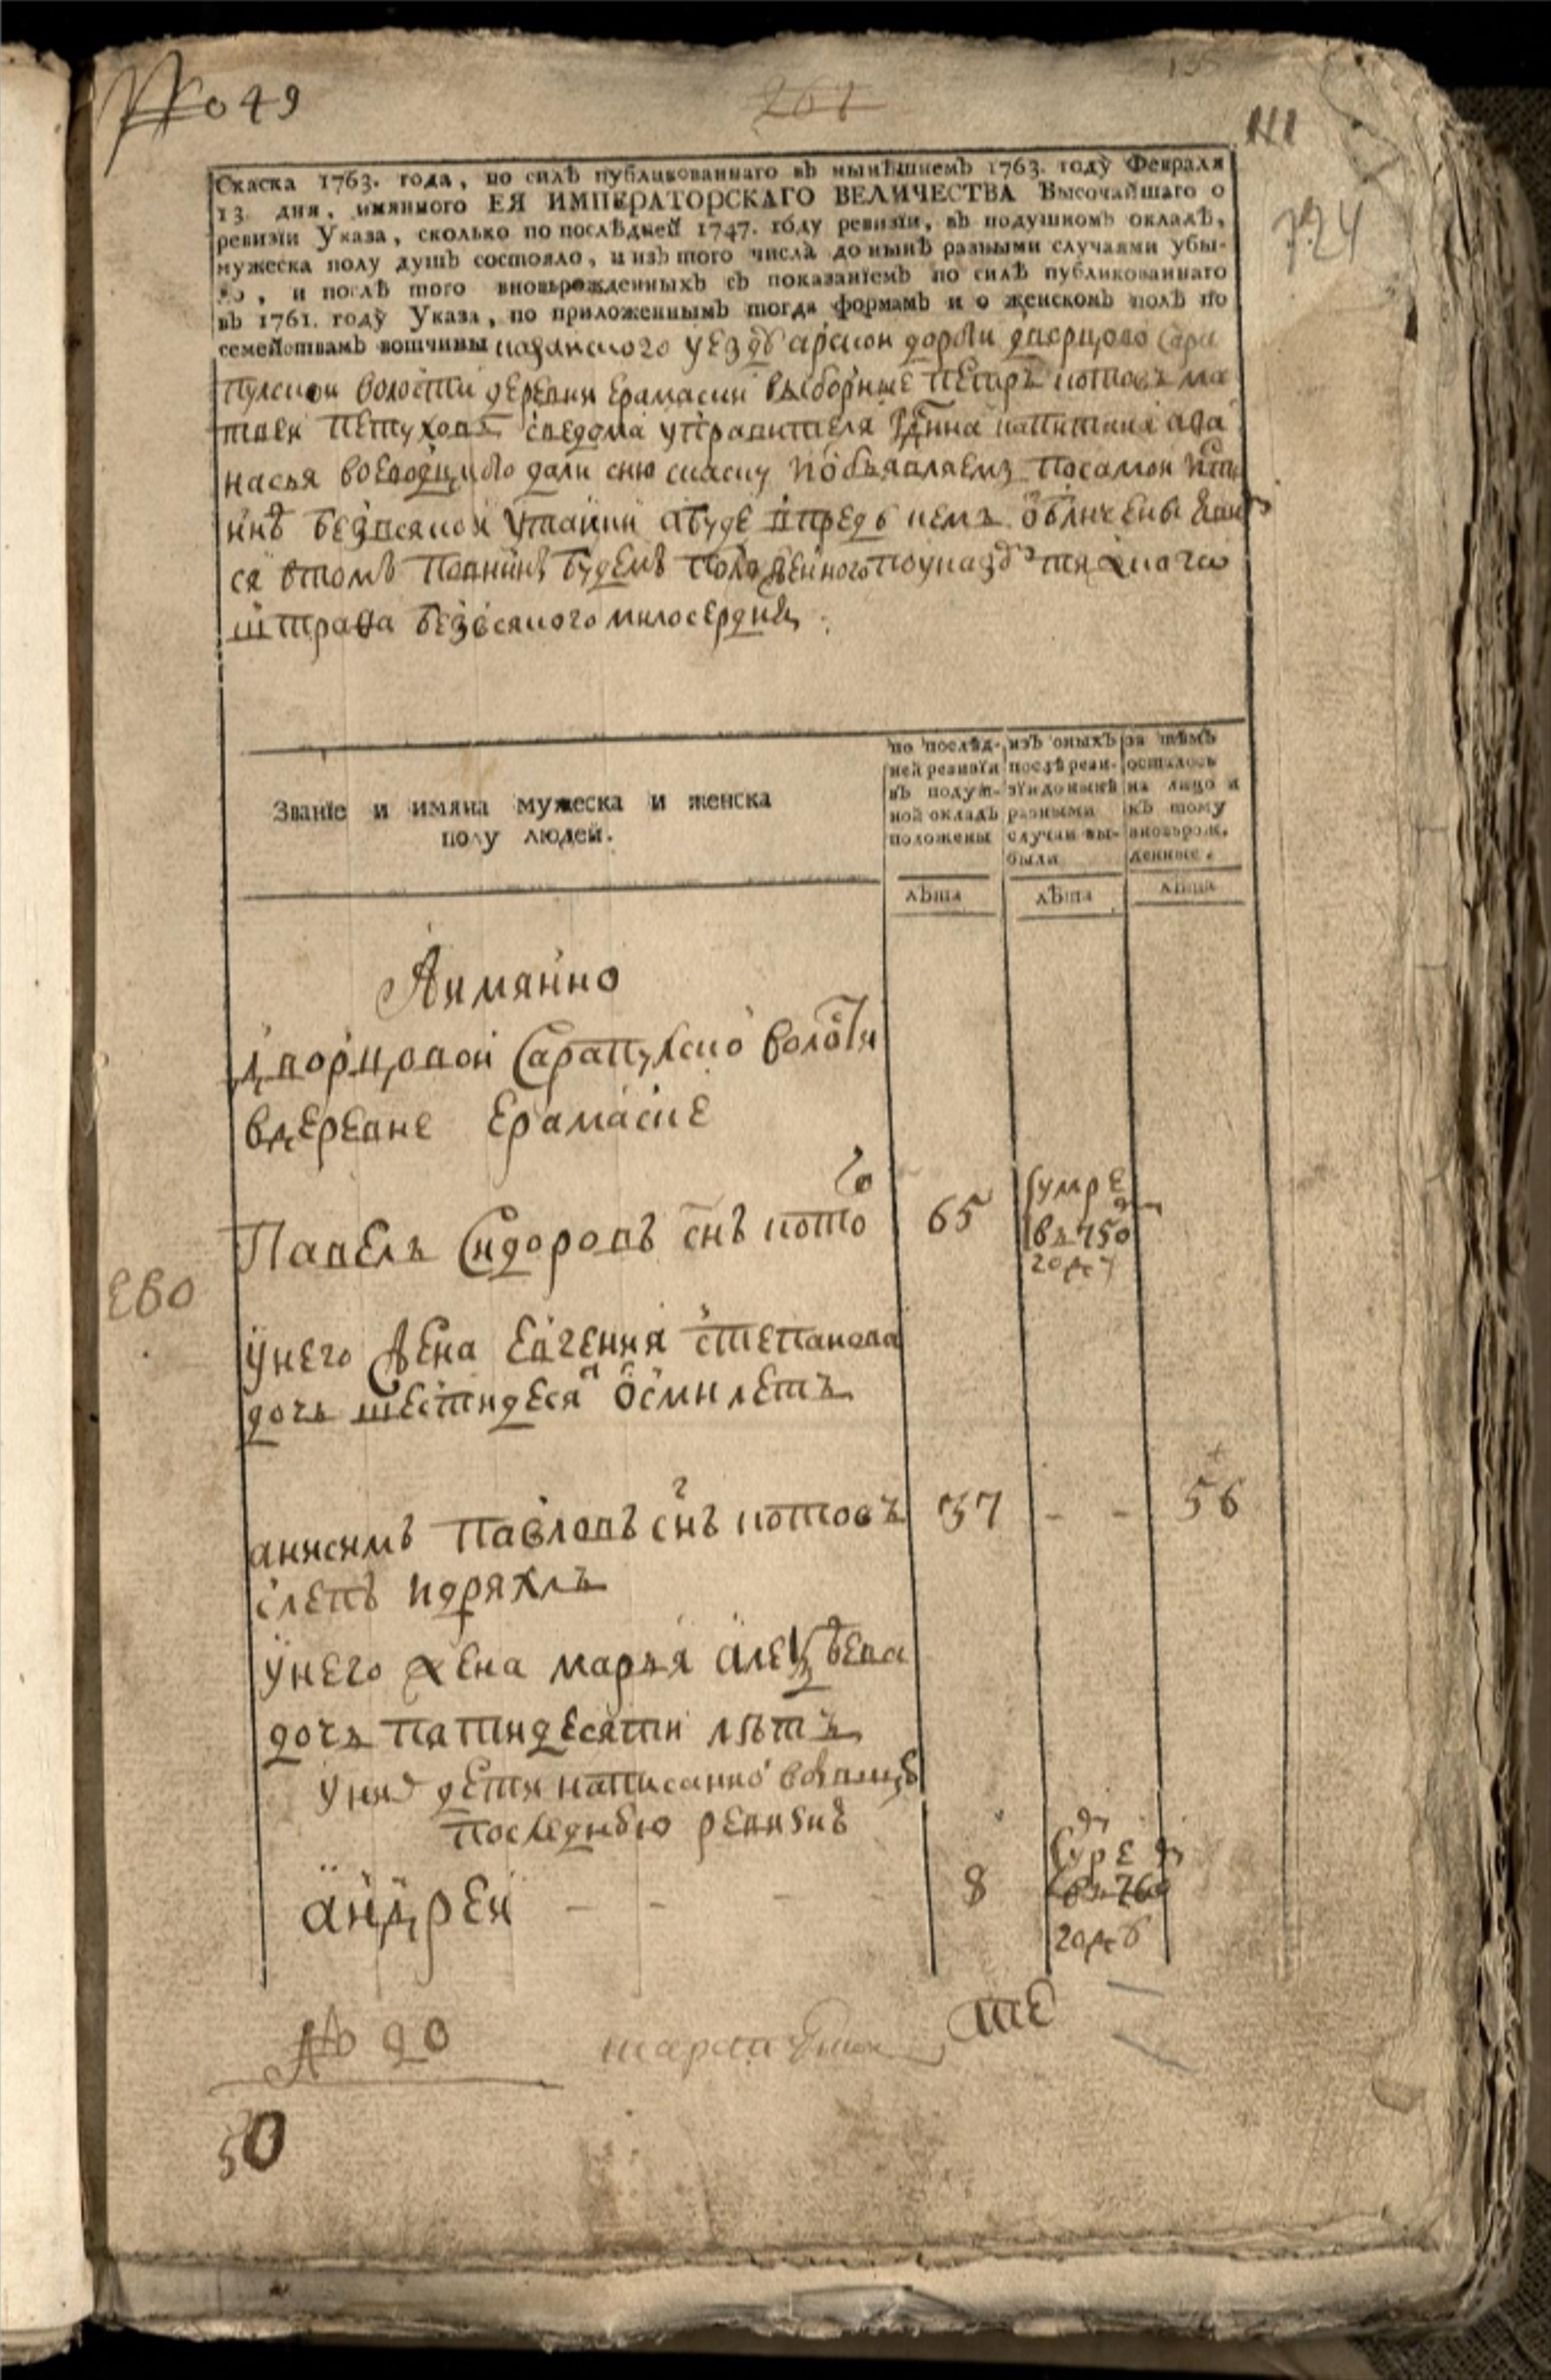 № 49
261
111
724
Скаска 1763. года, по силѣ публикованнаго въ нынѣшнемъ 1763. году Февраля
13. дня, имяннoго ЕЯ ИМПЕРАТОРСКАГО ВЕЛИЧЕСТВА Высочайшаго о
ревизїи Указа, сколько по послѣдней 1747. году ревизїи, въ подушномъ окладѣ,
мужеска полу душъ состояло, и изъ того числа до нынѣ разными случаями убы-
ло, и послѣ того вновьрожденныхъ съ показанїемъ по силѣ публикованнаго
въ 1761. году Указа, по приложеннымъ тогда формамъ и о женскомъ полѣ по
семействамъ вотчины казанского уезду арской дороги дворцовой Сара
пулской волости деревни Ерамаски выборные Петръ котовъ ма
твеи Петуховъ сведома управителя капитана афа
насья дали сию скаску и объявляемъ по самои исти
инѣ безвсякой утаики а буде впредь чемъ обличены
ся втомъ повинны будемъ положенного поуказу тяжкого
штрафа безвсякого милосердия
Званїе и имяна мужеска и женска
полу людей.
по послѣд-
ней ревизїи
въ подуш-
ной окладъ
положены
изъ оныхъ
послѣ реви-
зїи до нынѣ
разными
случаи вы-
были
за тѣмъ
осталось
на лицо и
къ тому
вновьрож.
денные.
лѣта
лѣта
лѣта
Аимянно
дворцовой Сарапулско волости
вдеревне Ерамаске
Павелъ Сидоровъ снъ кото 65 умре
въ 750
году
ево
унего жена Евгения степанова
дочь шестидеся осми летъ
анисимъ Павловъ снъ котовъ 37 - - 56
слепъ идряхлъ
унего жена марья алексѣева
дочь пятидесяти лѣтъ
уних дети написанно
последнею ревизиѣ
андреи - - - 8 умре
въ 760
годѣ
№ 20
50